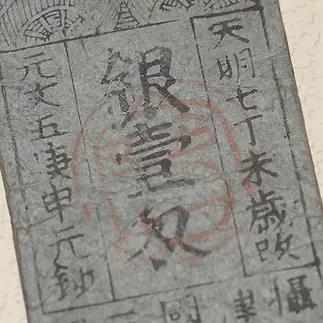 天明七丁未歳改
銀壹匁
元文五庚申元鈔
攝
國